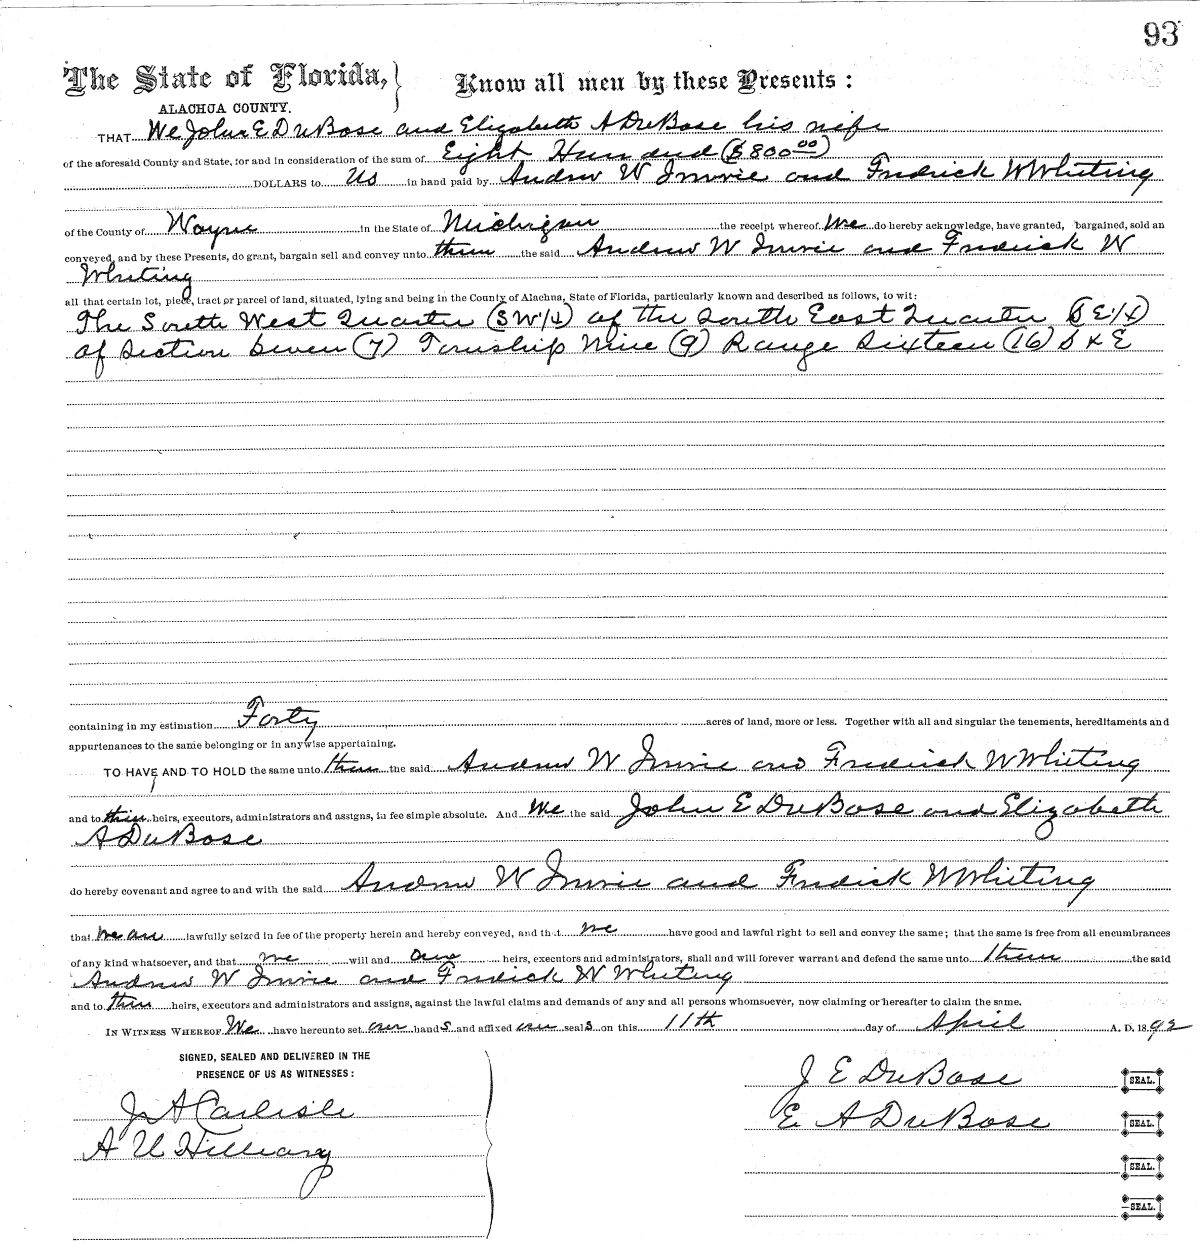 93
The State of Florida, } Know all men by these Presents :
ALACHUA COUNTY.
THAT We John E DuBose and Elizabeth A DuBose his wife
of the aforesaid County and State, for and in consideration of the sum of Eight Hundred ($800.00)
DOLLARS to us in hand paid by Andrew W Imrie and Fredrick W Whiting
of the County of Wayne in the State of Michigan the receipt whereof We do hereby acknowledge, have granted, bargained, sold an
conveyed, and by these Presents, do grant, bargain sell and convey unto them the said Andrew W Imrie and Fredrick W
Whiting
all that certain lot, piece, tract or parcel of land, situated, lying and being in the County of Alachua, State of Florida, particularly known and described as follows, to wit:
The South West Quarter (SW1/4) of the South East Quarter (SE1/4)
of Section Seven (7) Township Nine (9) Range Sixteen (16) S & E
containing in my estimation Forty acres of land, more or less. Together with all and singular the tenements, hereditaments and
appurtenances to the same belonging or in anywise appertaining.
TO HAVE AND TO HOLD the same unto them the said Andrew W Imrie and Fredrick W Whiting
and to their heirs, executors, administrators and assigns, in fee simple absolute. And We the said John E DuBose and Elizabeth
A DuBose
do hereby covenant and agree to and with the said Andrew W Imrie and Fredrick W Whiting
that we are lawfully seized in fee of the property herein and hereby conveyed, and that we have good and lawful right to sell and convey the same; that the same is free from all encumbrances
of any kind whatsoever, and that we will and our heirs, executors and administrators, shall and will forever warrant and defend the same unto them the said
Andrew W Imrie and Fredrick W Whiting
and to their heirs, executors and administrators and assigns, against the lawful claims and demands of any and all persons whomsoever, now claiming or hereafter to claim the same.
IN WITNESS WHEREOF We have hereunto set our hands and affixed our seals on this 11th day of April A. D. 1892
SIGNED, SEALED AND DELIVERED IN THE
PRESENCE OF US AS WITNESSES :
J E DuBose SEAL.
J A Carlisle
E A DuBose SEAL.
A U Hilleary
SEAL.
SEAL.